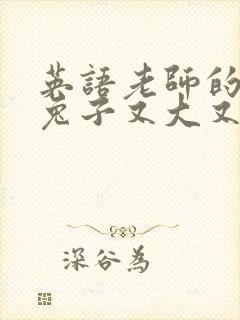 英語老師的
兔子又大又
深谷為